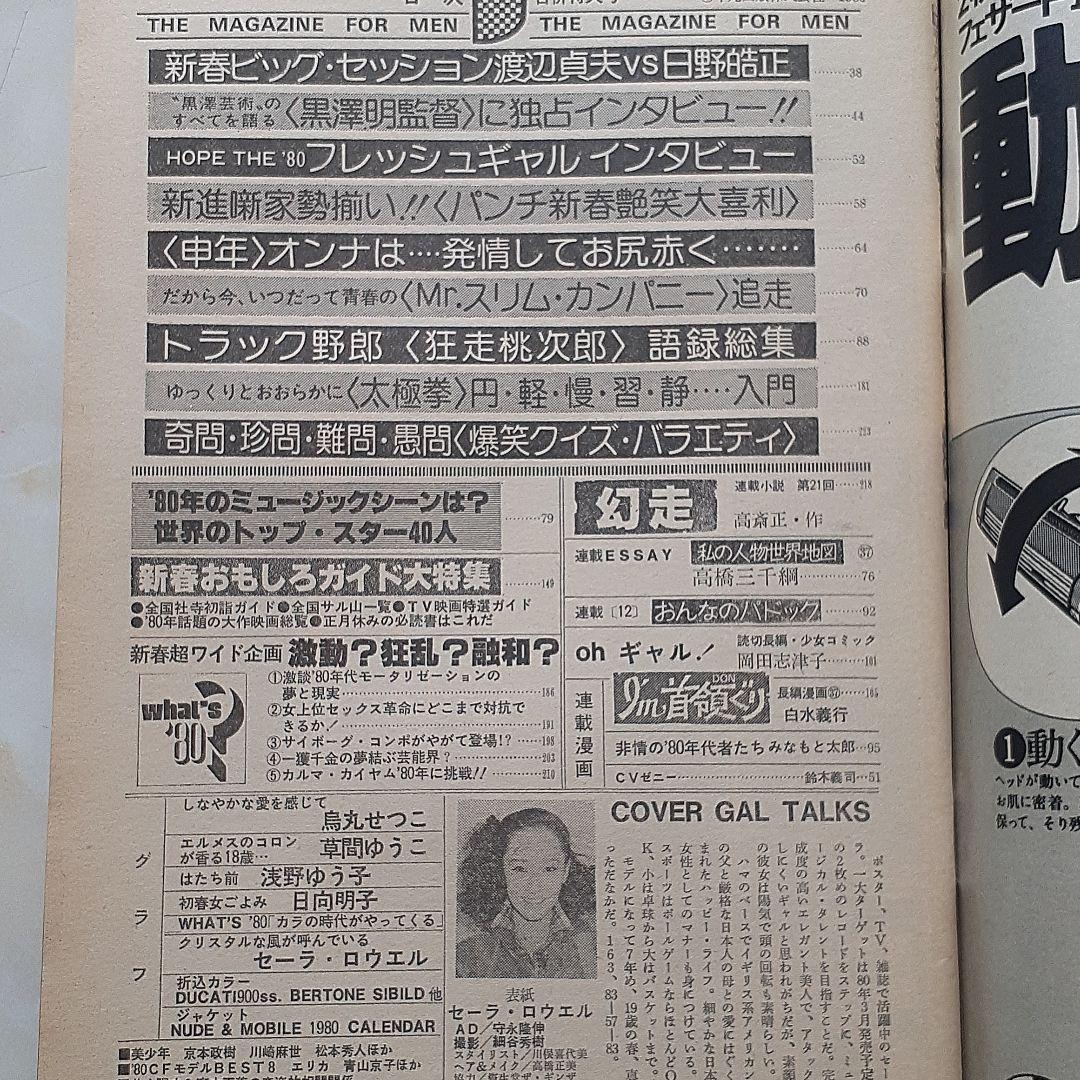 THE MAGAZINE FOR MEN THE MAGAZINE FOR MEN
新春ビッグ・セッション渡辺貞夫VS日野皓正………38
〝黒澤芸術〟の
すべてを語る〈黒澤明監督〉に独占インタビュー!!………44
HOPE THE '80フレッシュギャル インタビュー………52
新進噺家勢揃い!!〈パンチ新春艶笑大喜利〉………58
〈申年〉オンナは‥‥発情してお尻赤く‥‥‥‥………64
だから今、いつだって青春の〈Mr.スリム・カンパニー〉追走………70
トラック野郎〈狂走桃次郎〉語録総集………88
ゆっくりとおおらかに〈太極拳〉円・軽・慢・習・静‥‥入門………181
奇問・珍問・難問・愚問〈爆笑クイズ・バラエティ〉………223
'80年のミュージックシーンは?
世界のトップ・スター40人………79
新春おもしろガイド大特集………149
●全国社寺初詣ガイド●全国サル山一覧●TV映画特選ガイド
●'80年話題の大作映画総覧●正月休みの必読書はこれだ
新春超ワイド企画 激動?狂乱?融和?
what's '80?
①激談'80年代モータリゼーションの
夢と現実………186
②女上位セックス革命にどこまで対抗で
きるか!………191
③サイボーグ・コンポがやがて登場!?……198
④一獲千金の夢結ぶ芸能界?………203
⑤カルマ・カイヤム'80年に挑戦!!……210
幻走
連載小説 第21回……218
高斎正・作
連載ESSAY 私の人物世界地図 ㊲
高橋三千綱………76
連載〔12〕おんなのパドック………92
oh ギャル!
読切長編・少女コミック
岡田志津子………101
連載漫画
I'm首領ぐり
DON
長編漫画㊲……105
白水義行
非情の'80年代者たち みなもと太郎…95
CVゼニー………鈴木義司…51
グラフ
しなやかな愛を感じて
烏丸せつこ
エルメスのコロン
が香る18歳… 草間ゆうこ
はたち前 浅野ゆう子
初春女ごよみ 日向明子
WHAT'S '80「カラの時代がやってくる」
クリスタルな風が呼んでいる
セーラ・ロウエル
折込カラー
DUCATI900ss. BERTONE SIBILD 他
ジャケット
NUDE & MOBILE 1980 CALENDAR
■美少年 京本政樹 川崎麻世 松本秀人ほか
■'80CFモデルBEST8 エリカ 青山京子ほか
表紙
セーラ・ロウエル
AD/守永隆伸
撮影/細谷秀樹
スタイリスト/川俣喜代美
ヘア&メイク/高橋正美
COVER GAL TALKS
ポスター、TV、雑誌で活躍中のセー
ラ。一大ターゲットは80年3月発売予定
の2枚めのレコードをステップに、ミュ
ージカル・タレントを目指すことだ。完
成度の高いエレガント美人で、アタック
しにくいギャルと思われがちだが、素顔
の彼女は陽気で頭の回転も素晴らしい。
ハマのベースでイギリス系アメリカン
の父と厳格な日本人の母との愛にはぐく
まれたハッピー・ライフ。細やかな日本
女性としてのマナーも身につけている。
スポーツはボールゲームならほとんどO
K、小は卓球から大はバスケットまで。
モデルになって7年め、19歳の春、真
っただなかだ。163、83―57―83
動
❶動く
ヘッドが動いて
お肌に密着。
保って、そり残